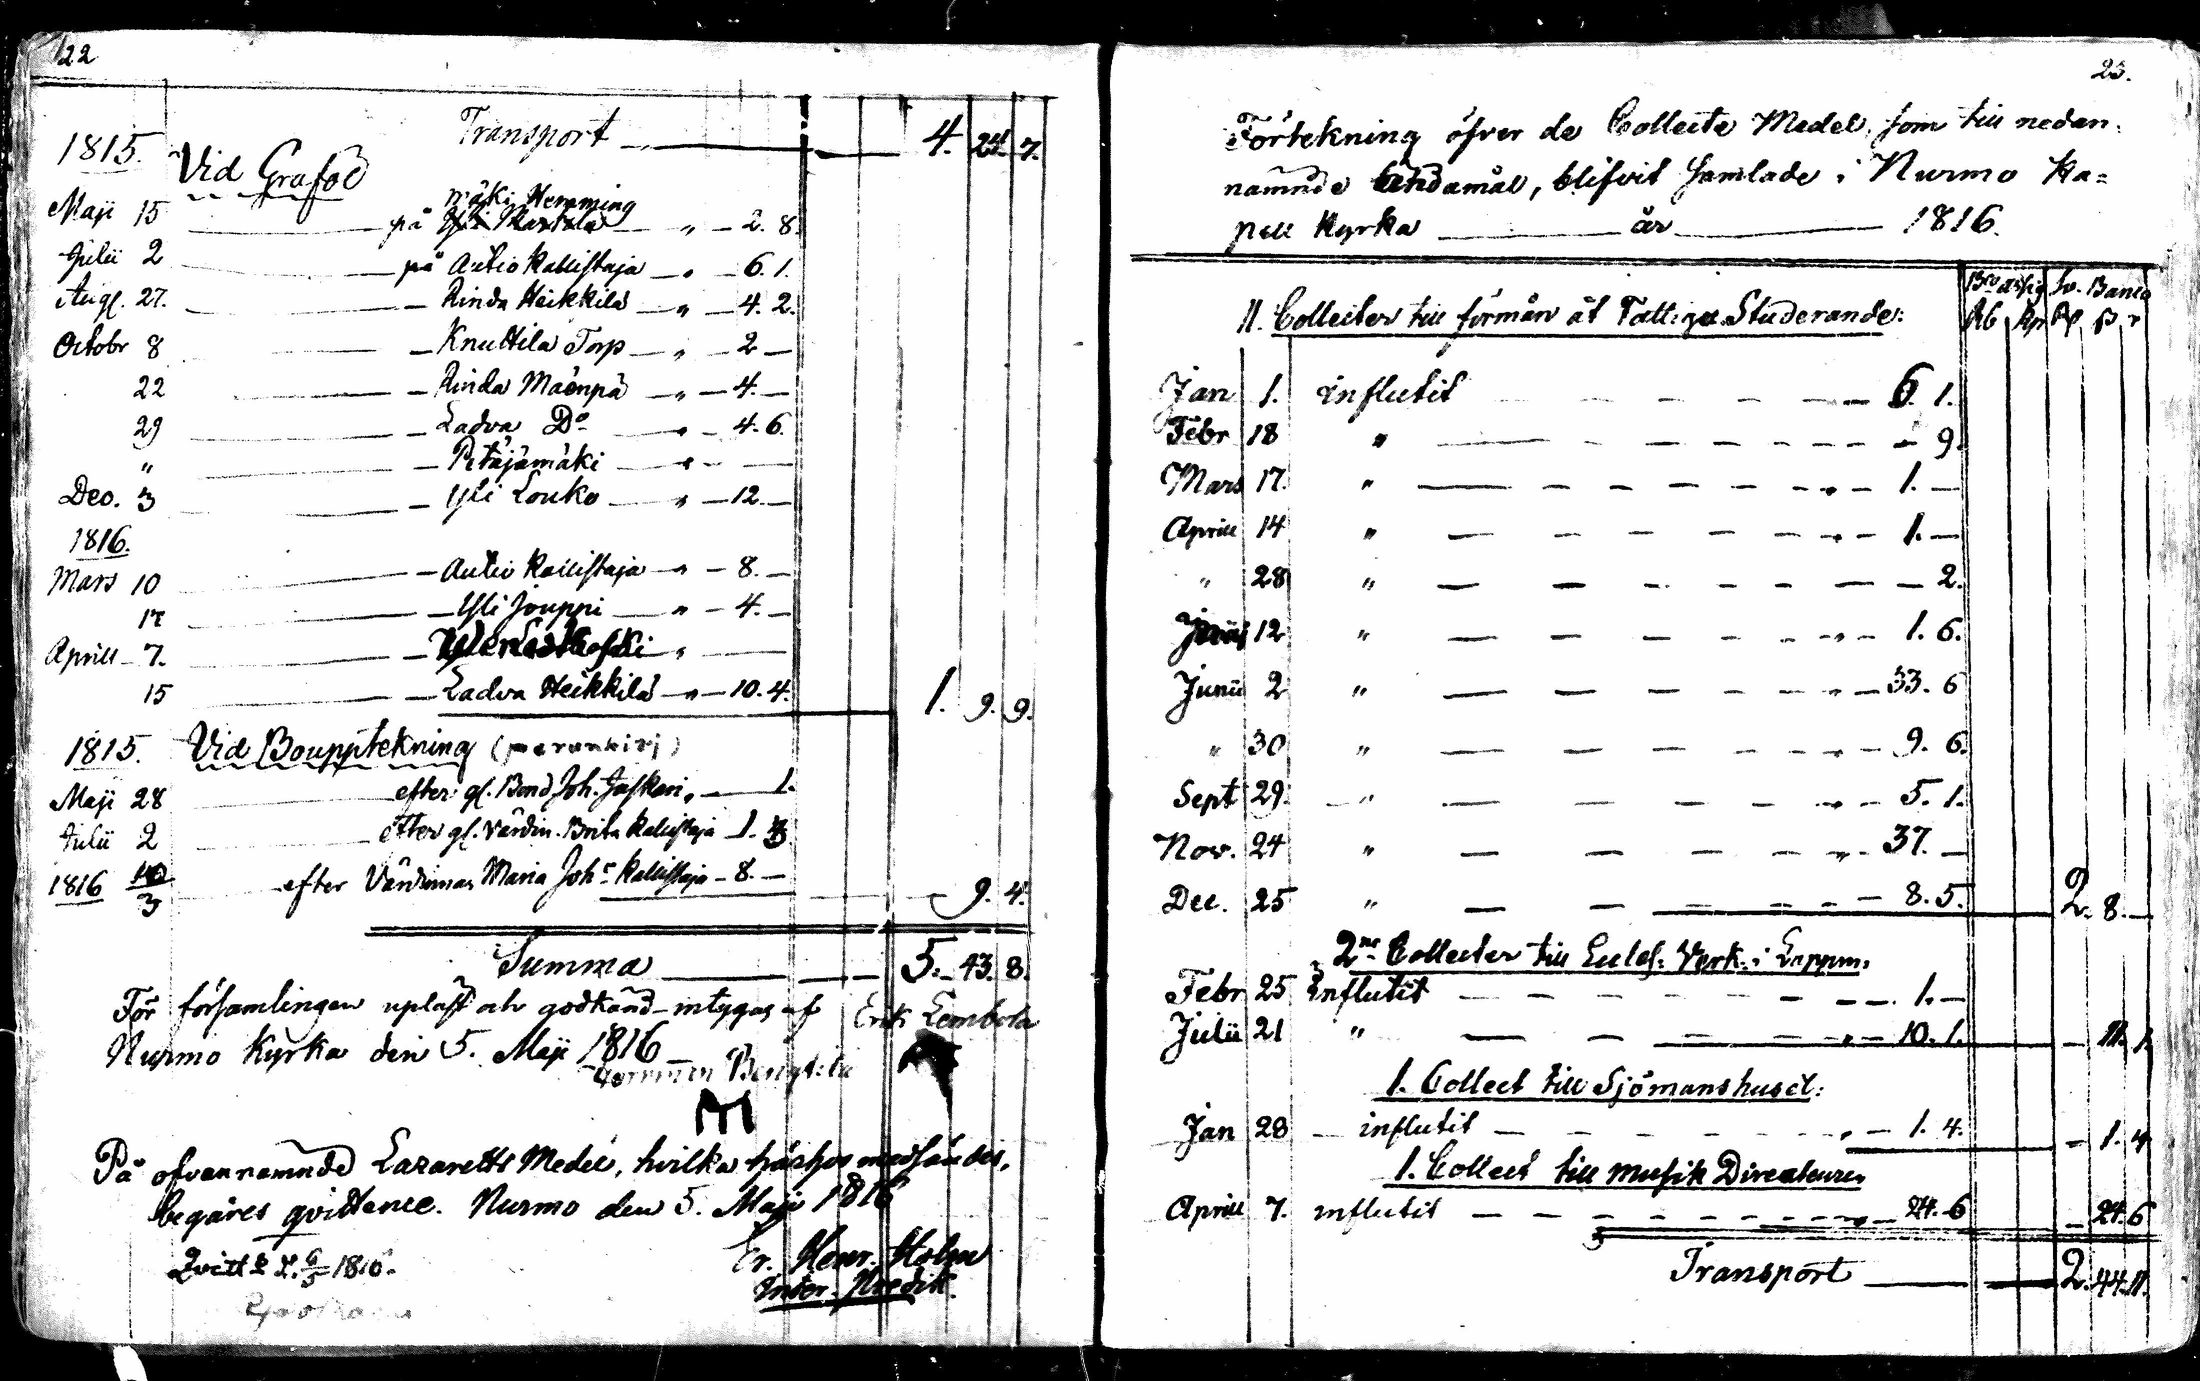 22
Transport 4. 24. 7.
1815. Vid Graföl
Maji 15 på Mäki Hemming " 2. 8.
Julii 2 på Autio Kallistaja " 6. 1.
Aug. 27. Rinda Heikkilä " 4. 2.
Octobr 8 Knuttila Torp " 2 —
22 Rinda Mäenpä " 4. —
29 Ladva Do " 4. 6.
" Petäjämäki " —
Dec. 3 Yli Louko " 12. —
1816.
Mars 10 Autio Kallistaja " 8. —
17 Yli Jouppi " 4. —
Aprill 7. " —
15 Ladva Heikkilä " 10. 4. 1. 9. 9.
1815. Vid Boupptekning (perunkirj)
Maji 28 efter gl. Bond Joh. Jaskari " 1.
Julii 2 efter gl. Värdin. Brita Kallistaja 1. 3
1816 10/3 efter Värdinnan Maria Johs Kallistaja 8. — 9. 4.
Summa 5. 43. 8.
För församlingen upläst och godkänd intygas af Erik Lembola
Nurmo Kyrka den 5. Maji 1816 Bengtila
På ofvannämnde Lazaretts Medel, hvilka härhos medsändes,
begäres qvittence. Nurmo den 5. Maji 1816
Er. Henr. Holm
Qvitt d. 9/5 1816.
23.
Förtekning öfver de Collecte Medel, som till nedan
nämnde ändamål, blifvit samlade i Nurmo Ka=
pell Kyrka år 1816.
Bco assig Sv. Banco
11. Collecter till förmån åt Fattiga Studerande: Rb Kp Rd ß r
Jan 1. influtit 6. 1.
Febr 18 " 9.
Mars 17. " 1. —
Aprill 14 " 1. —
" 28 " 2.
12 " 1. 6.
Junii 2 " 33. 6
" 30 " 9. 6.
Sept 29. " 5. 1.
Nov. 24 " 37. —
Dec. 25 " 8. 5. 2. 8. —
2ne Collecter till Eccles: Verk: i Lappm.
Febr 25 influtit 1. —
Julii 21 " 10. 1. — 11. 1.
1. Collect till Sjömanshuset:
Jan 28 influtit 1. 4. — 1. 4
1. Collect till Musik Directeuren
Aprill 7. influtit 24. 6 — 24. 6
Transport 2. 44. 11.